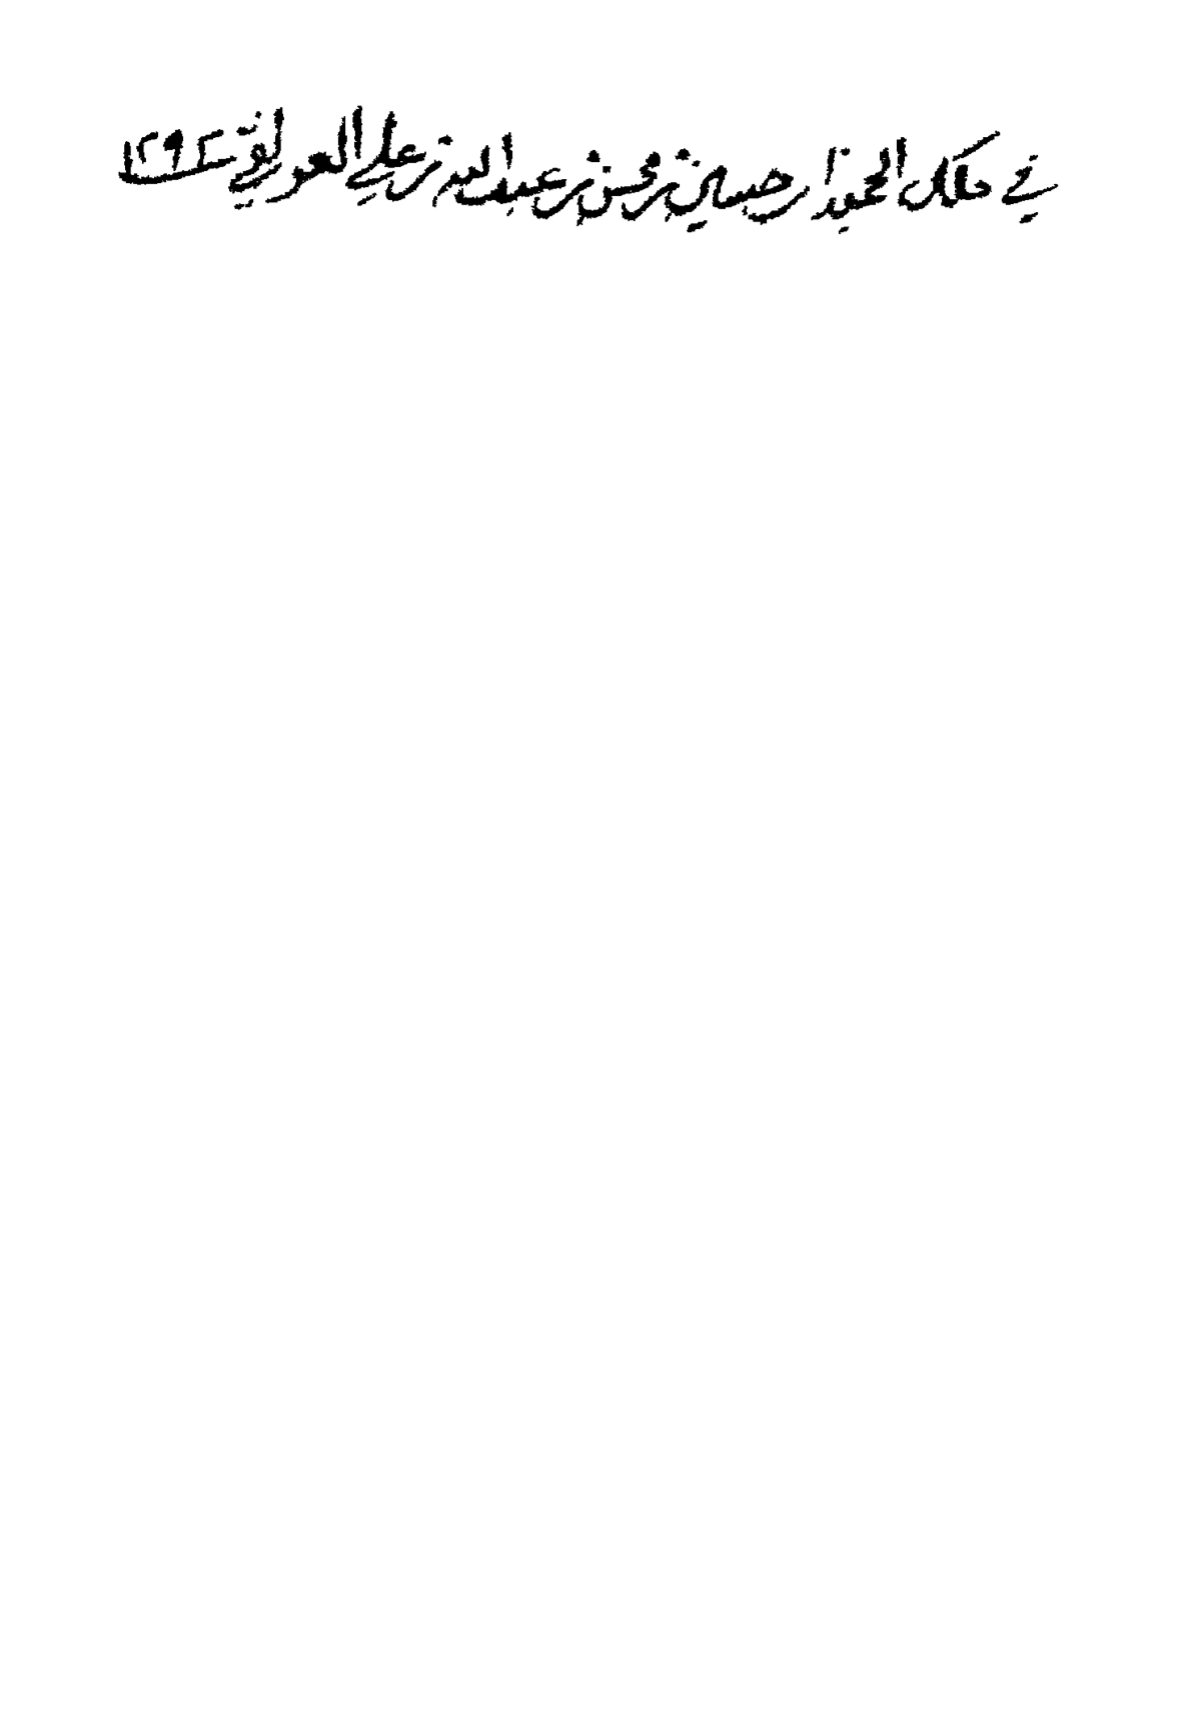 في ملك الحقير حسين بن محسن بن عبد الله بن علي العولقي ١٢٩٢